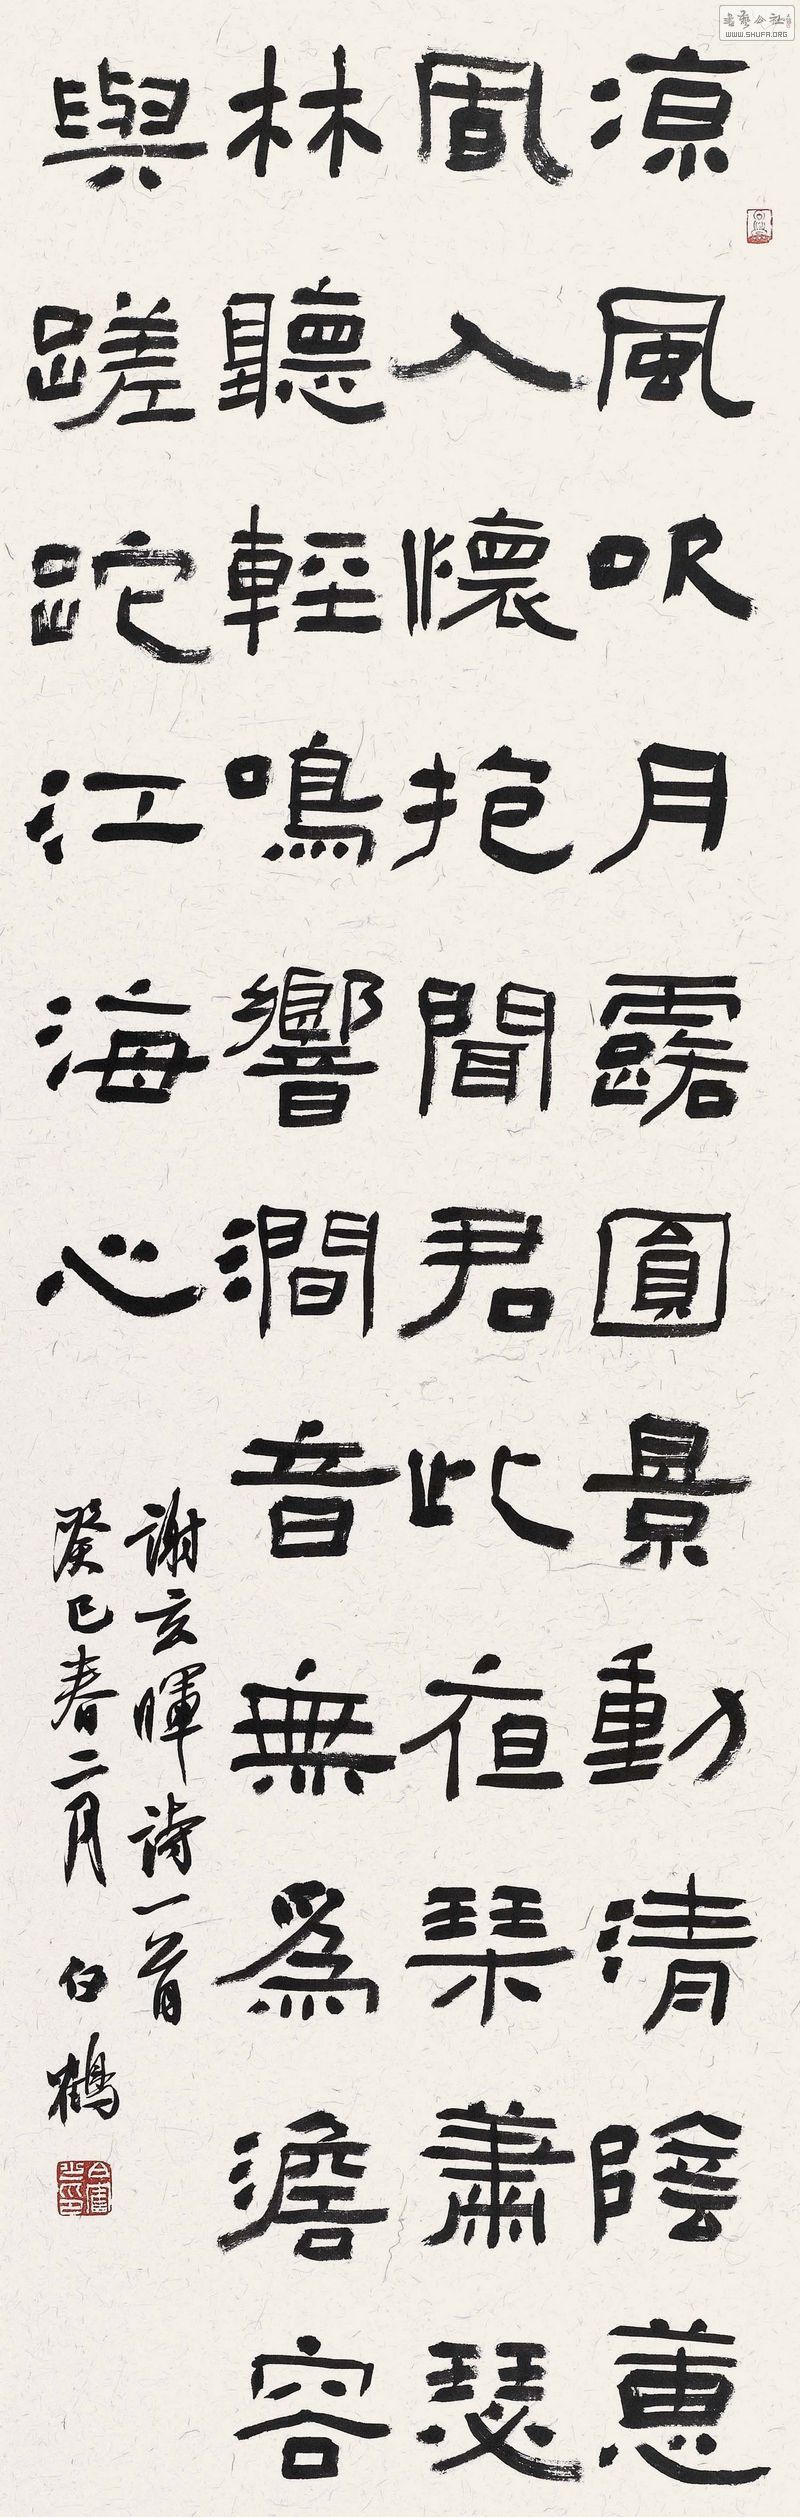 涼風吹月露圓景動清陰蕙
風入懷抱聞君此夜琴蕭瑟
林聽輕鳴響澗音無為澹容
與蹉跎江海心
謝玄暉詩一首
癸巳春二月 鶴
书艺公社
WWW.SHUFA.ORG